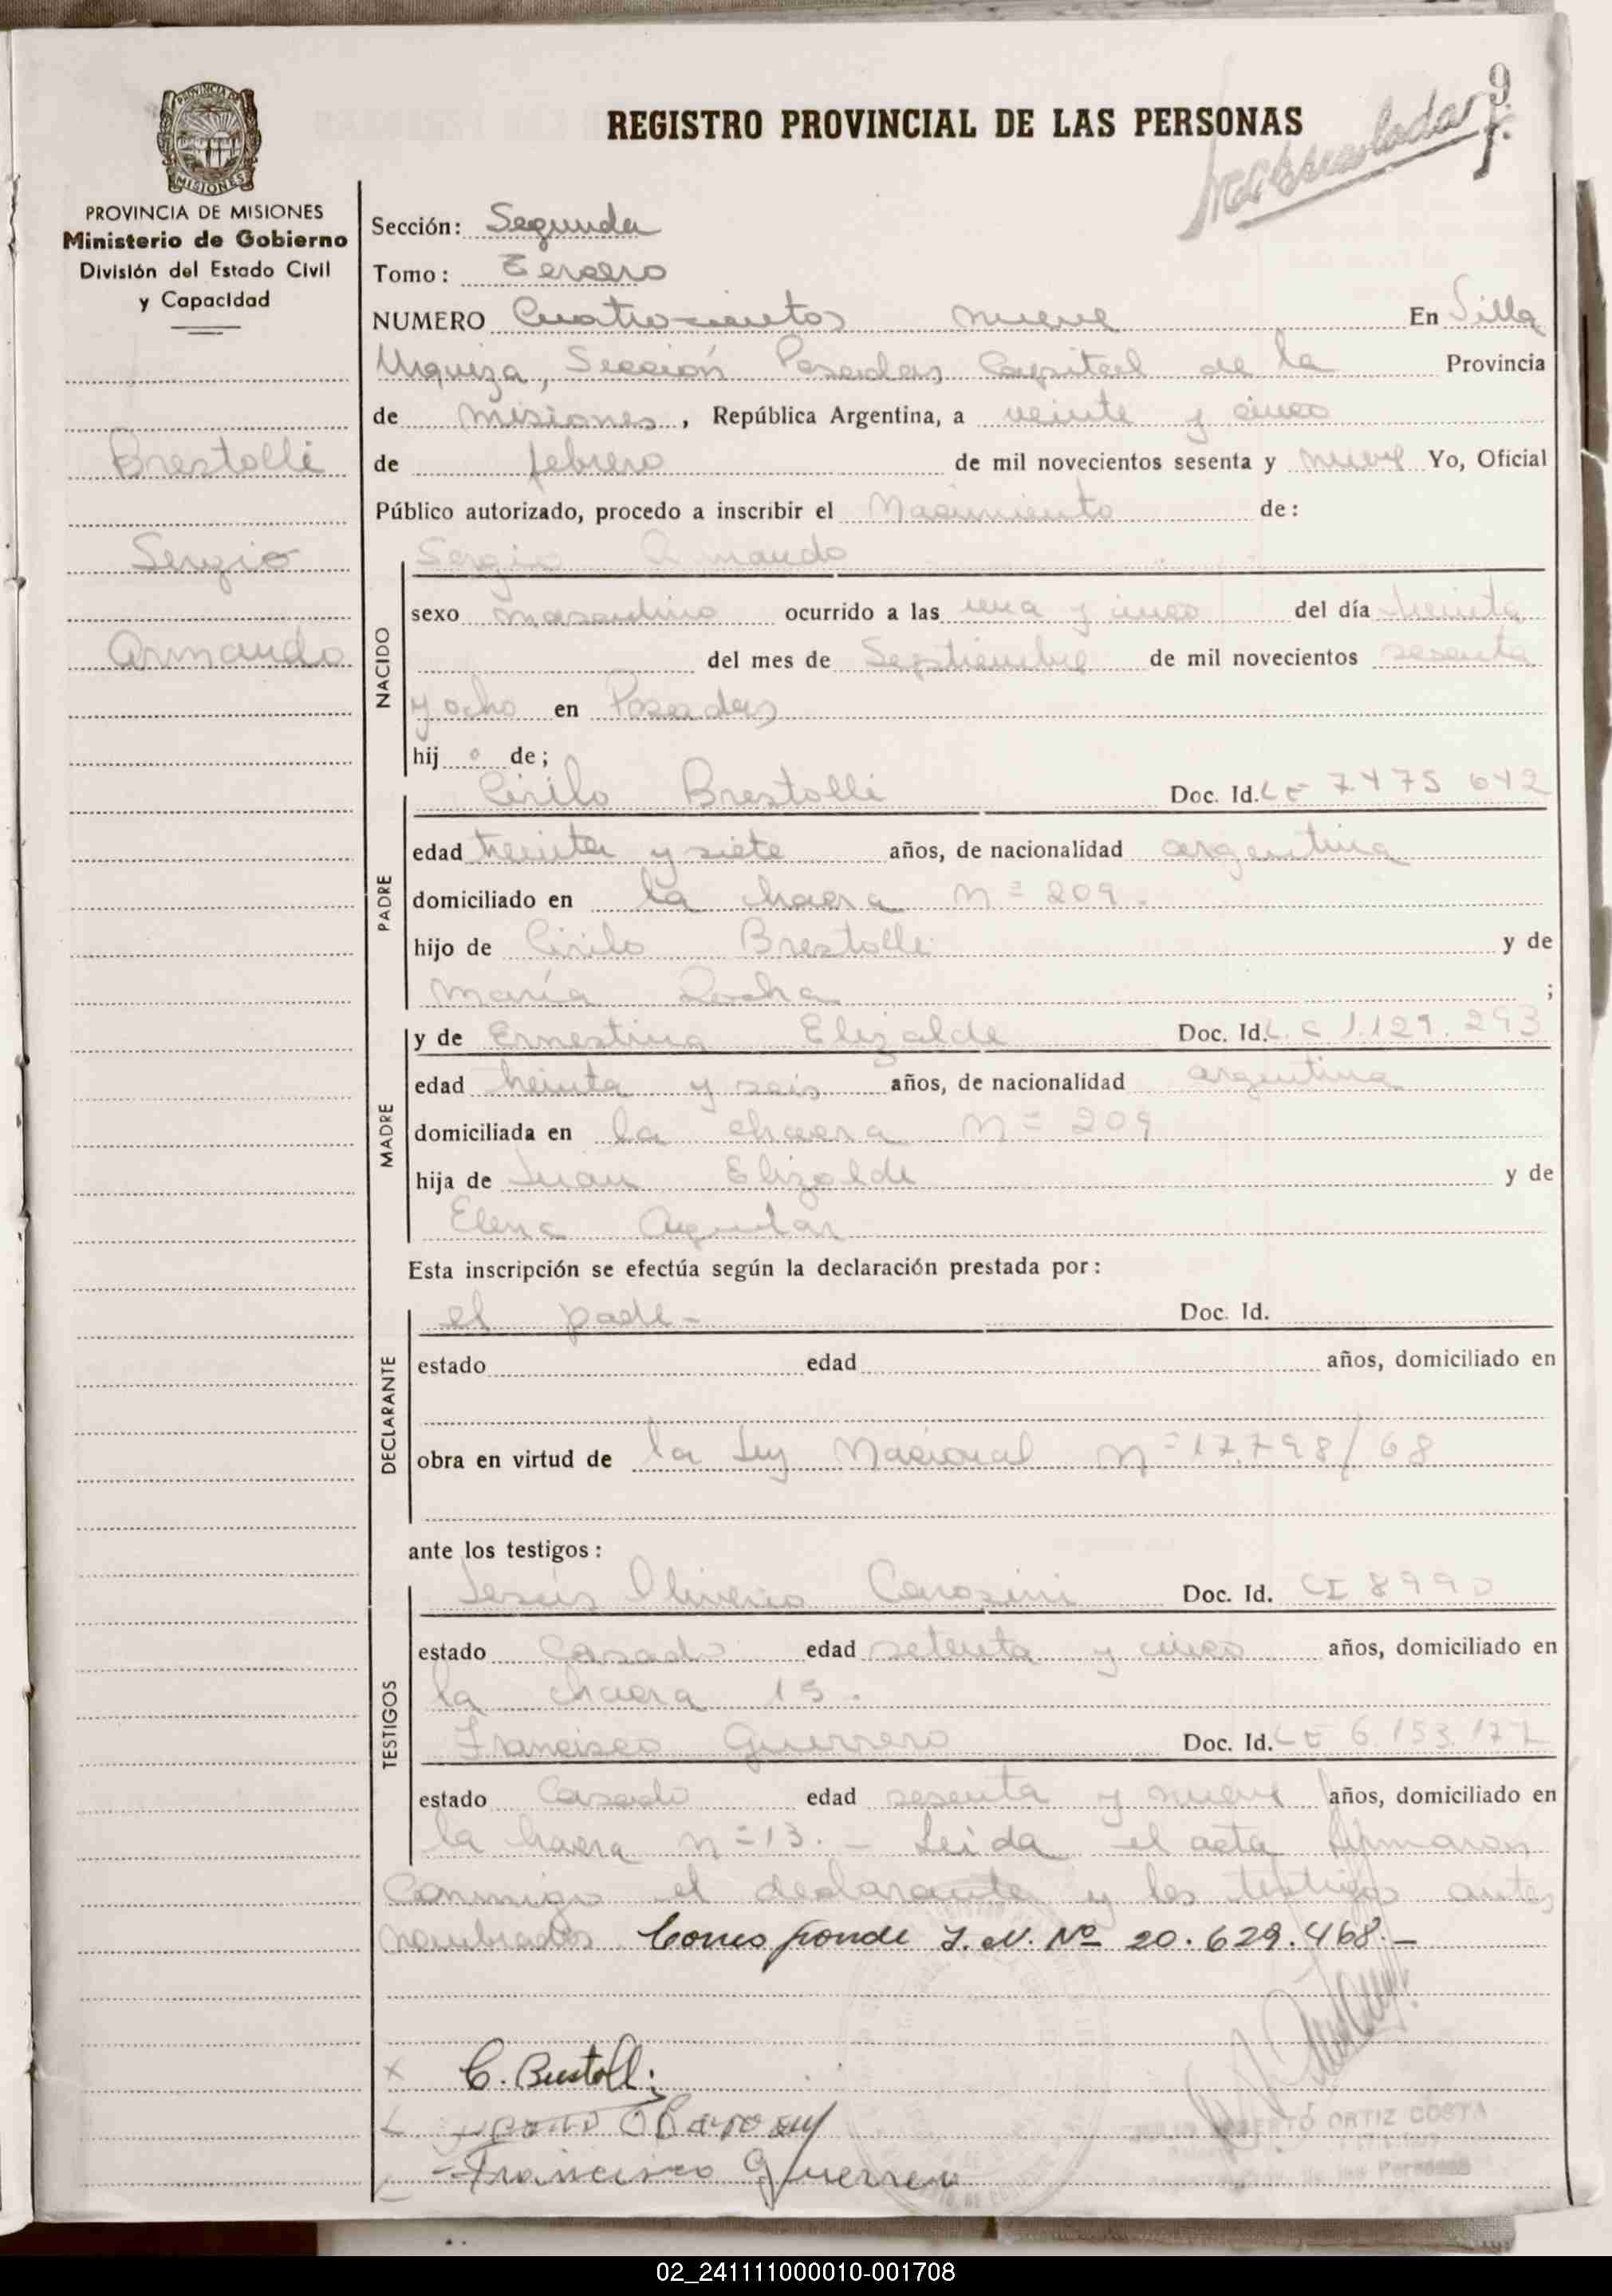 9
REGISTRO PROVINCIAL DE LAS PERSONAS
PROVINCIA DE MISIONES
MISIONES
PROVINCIA DE MISIONES
Ministerio de Gobierno
División del Estado Civil
y Capacidad
Brestolli
Sergio
Armando
Sección: Segunda
Tomo: Tercero
NUMERO Cuatrocientos nueve En Villa
Urquiza, Sección Posadas Capital de la Provincia
de Misiones, República Argentina, a veinte y cinco
de febrero de mil novecientos sesenta y nueve Yo, Oficial
Público autorizado, procedo a inscribir el Nacimiento de:
NACIDO
Sergio Armando
sexo masculino ocurrido a las una y cinco del día treinta
del mes de Septiembre de mil novecientos sesenta
y ocho en Posadas
hij o de;
PADRE
Cirilo Brestolli Doc. Id. LE 7475 642
edad treinta y siete años, de nacionalidad argentina
domiciliado en la chacra Nº 209.
hijo de Cirilo Brestolli y de
María Rocha ;
MADRE
y de Ernestina Elizalde Doc. Id. L.C 1.129.293
edad treinta y seis años, de nacionalidad argentina
domiciliada en la chacra Nº 209
hija de Juan Elizalde y de
Elena Aguilar
Esta inscripción se efectúa según la declaración prestada por:
DECLARANTE
el padre - Doc. Id.
estado edad años, domiciliado en
obra en virtud de la Ley Nacional Nº 17.798/68
ante los testigos:
TESTIGOS
Jesús Oliverio Carozini Doc. Id. CI 8990
estado Casado edad setenta y cinco años, domiciliado en
la chacra 15.
Francisco Guerrero Doc. Id. LE 6.153.177
estado Casado edad sesenta y nueve años, domiciliado en
la chacra Nº 13. - Leida el acta firmaron
Conmigo el declarante y los testigos antes
nombrados Corresponde I.N. Nº 20.629.468.-
C. Brestolli
Francisco Guerrero
ORTIZ COSTA
de las Personas
02_241111000010-001708